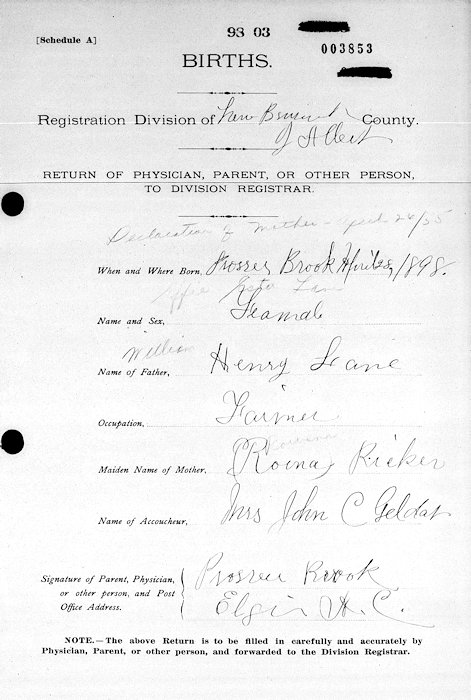 [Schedule A]
93 03
003853
BIRTHS.
Registration Division of New Brunswick County.
of Albert
RETURN OF PHYSICIAN, PARENT, OR OTHER PERSON,
TO DIVISION REGISTRAR.
Declaration of Mother - April 26/55
When and Where Born, Prosser Brook April 28, 1898.
Name and Sex, Feamal
William
Name of Father, Henry Lane
Occupation, Farmer
Maiden Name of Mother, Roina Ricker
Name of Accoucheur, Mrs John C Geldat
Signature of Parent, Physician,
or other person, and Post
Office Address.
Prosser Brook
Elgin A. C.
NOTE.—The above Return is to be filled in carefully and accurately by
Physician, Parent, or other person, and forwarded to the Division Registrar.